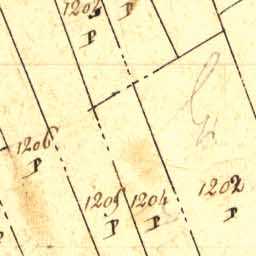 p
p
1206
p
1205 1204
p p
1202
p